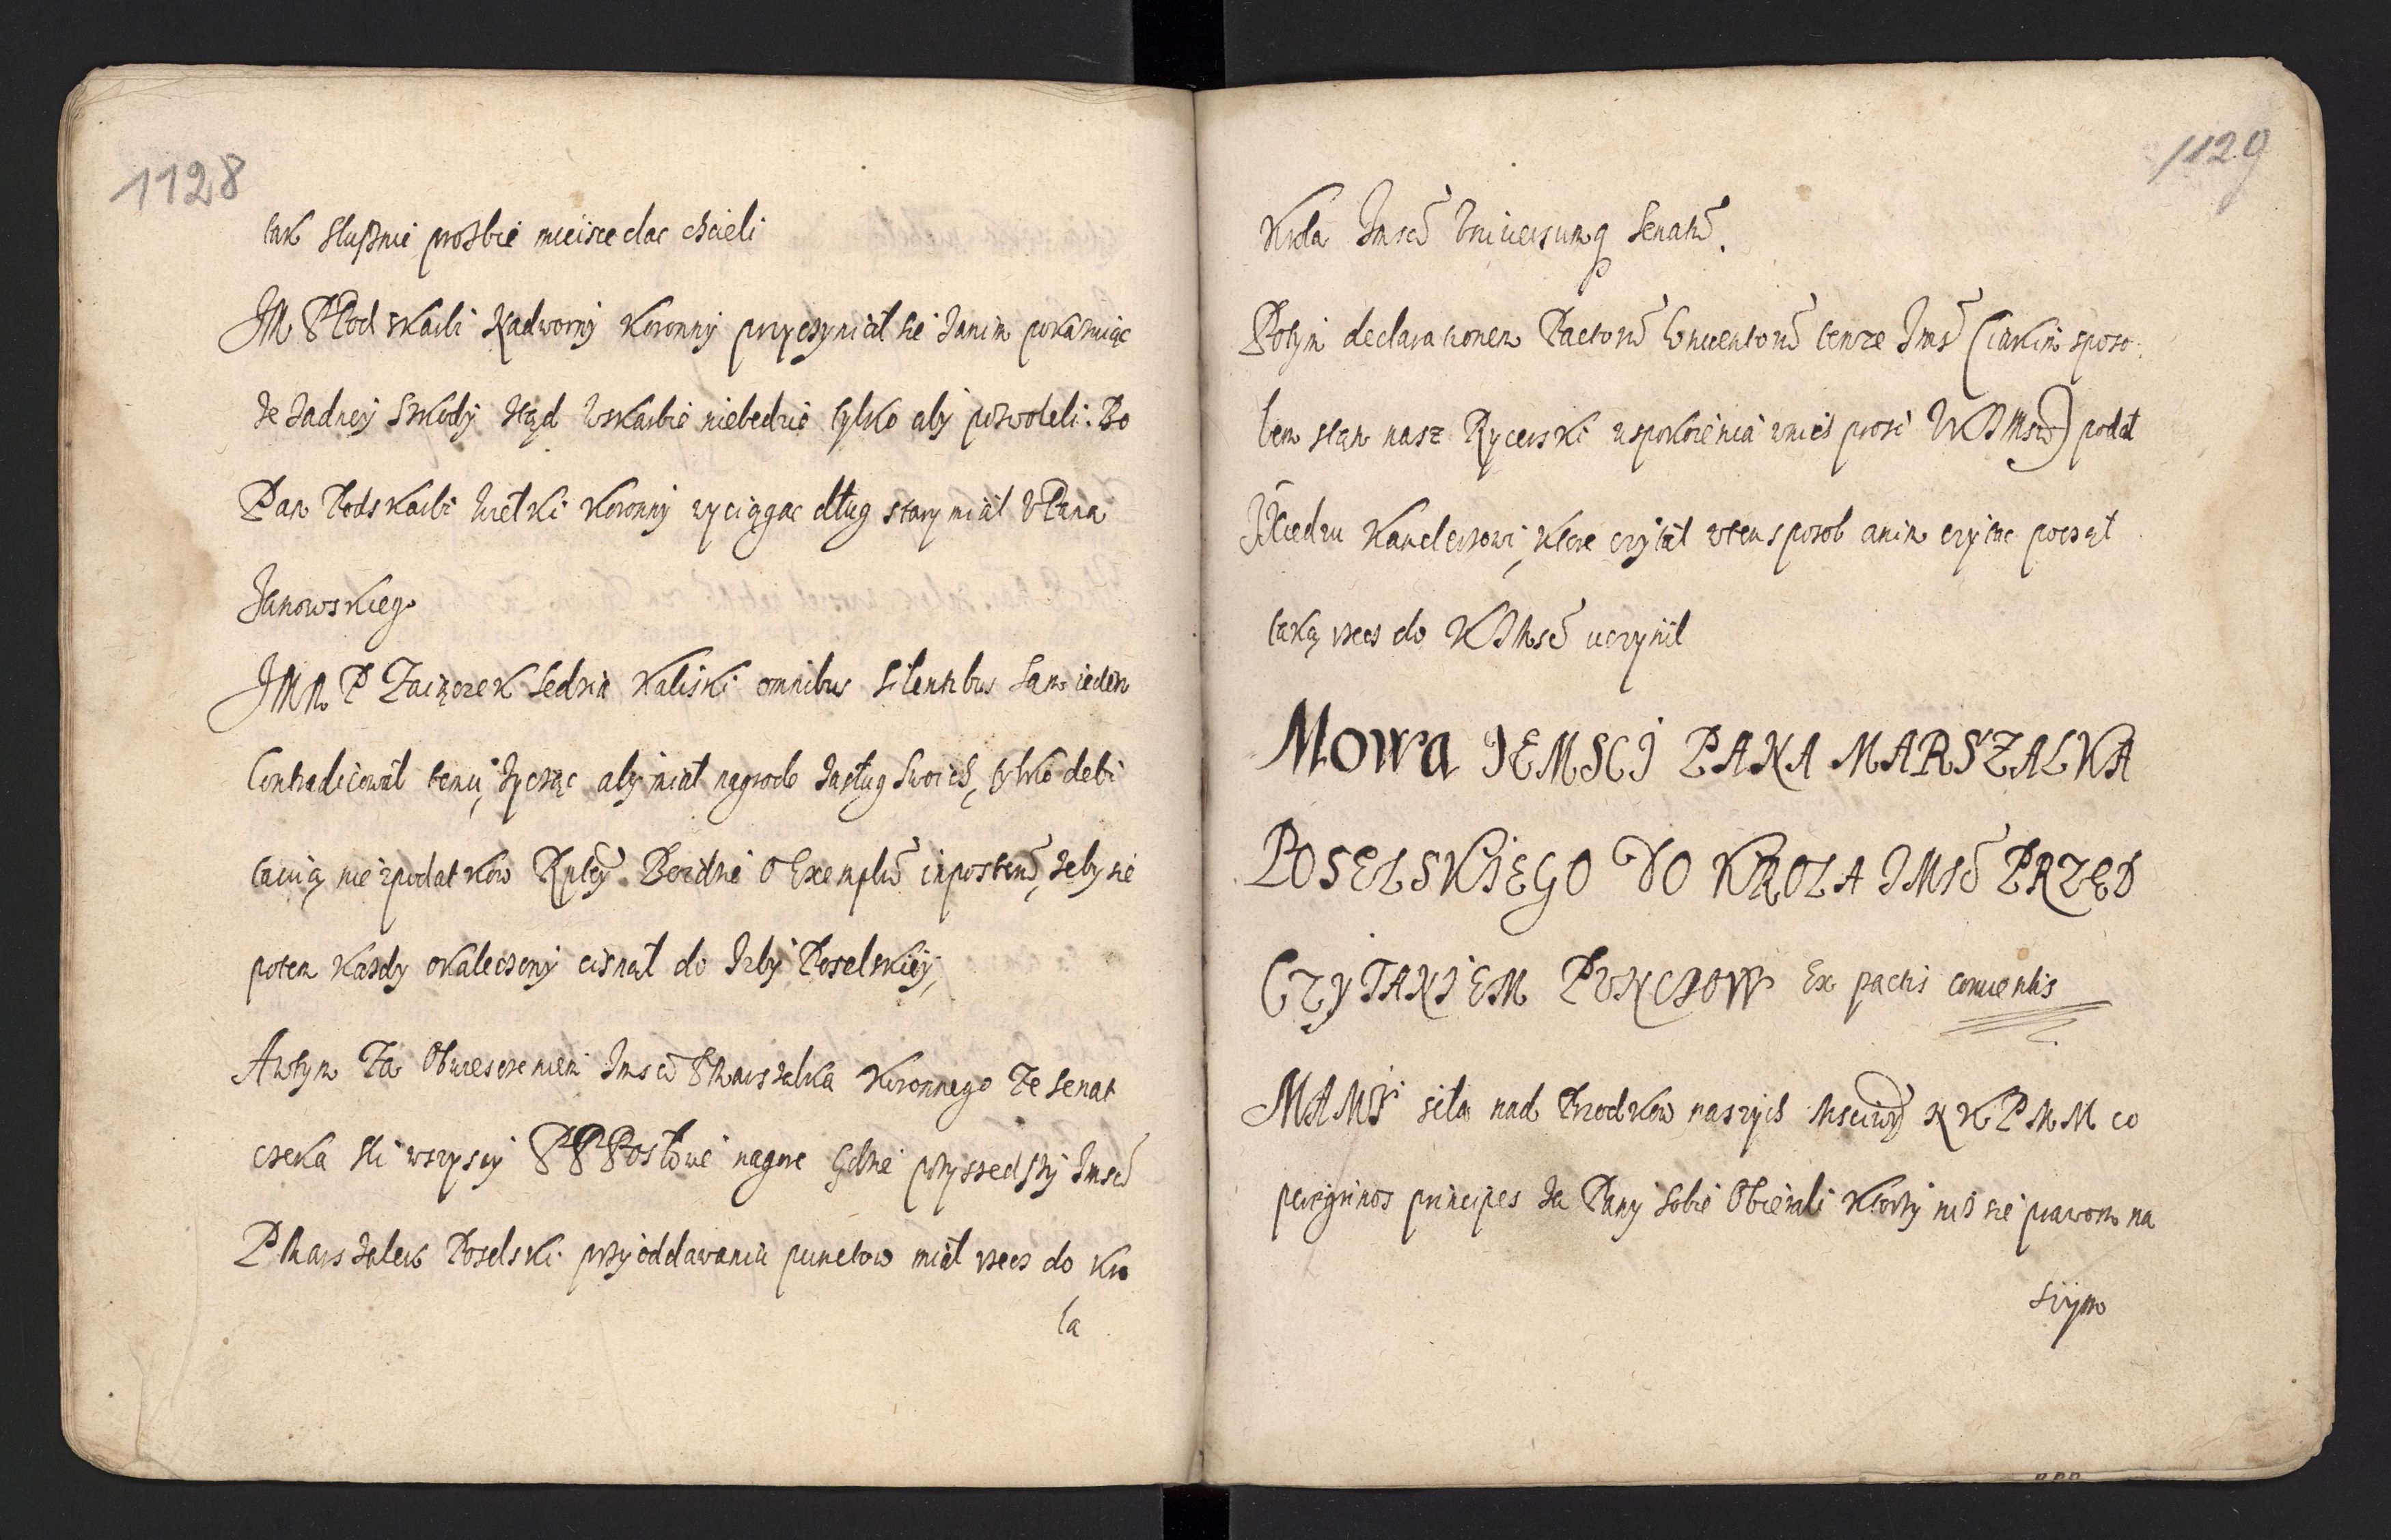 1128
tak słusznie proźbie mieisce dac chcieli
JM PPodskarbi Nadworny Koronny przyczyniał sie zanim pokazuiąc
ze zadney szkody ztąd wskarbie niebedzie tylko aby pozwoleli. Bo
Pan Podskarbi Wielki Koronny wyciągac dług stary miał V Pana
Janowskiego
JMM P Zaiączek Sedzia Kaliski omnibus silentibus sam ieden
Contradicował temu, zycząc aby miał nagrode zasług swoich, tylko debi
tacuią nie zpodatkow Rptey. Boidzie o Exemplū inposterū, zeby sie
potem kazdy okaleczony cisnął do Izby Poselskiey,
Awtym Za Obwieszczeniem Jmsci PMarszałka Koronnego Ze Senat
czeka szli wszyscy PPPosłowie nagore gdzie przyszedszy Jmsc
PMarszałek Poselski przy oddawaniu punctow miał rzecz do Kro
la
1129
Krola Jmsci Universumq Senatū.
Potym declarationem Pactorū Conventorū tenze Jms (iakim sposo
bem stan nasz Rycerski uspokoienia wnieś prosi WKMsci) podał
JXiedzu Kanclerzowi, ktore czytał wten sposob anim czytac począł
taką rzecz do KJMsci uczynił
Mowa JEMSCJ PANA MARSZALKA
POSELSKJEGO DO KROLA JMSC PRZED
CZYTANJEM PUNCTOW Ex pactis conventis
MAMY siła nad Przodkow naszych Msciwy NKPMM co
peregrinos principes za Pany sobie Obierali Ktorzy niz sie prawom na
szym